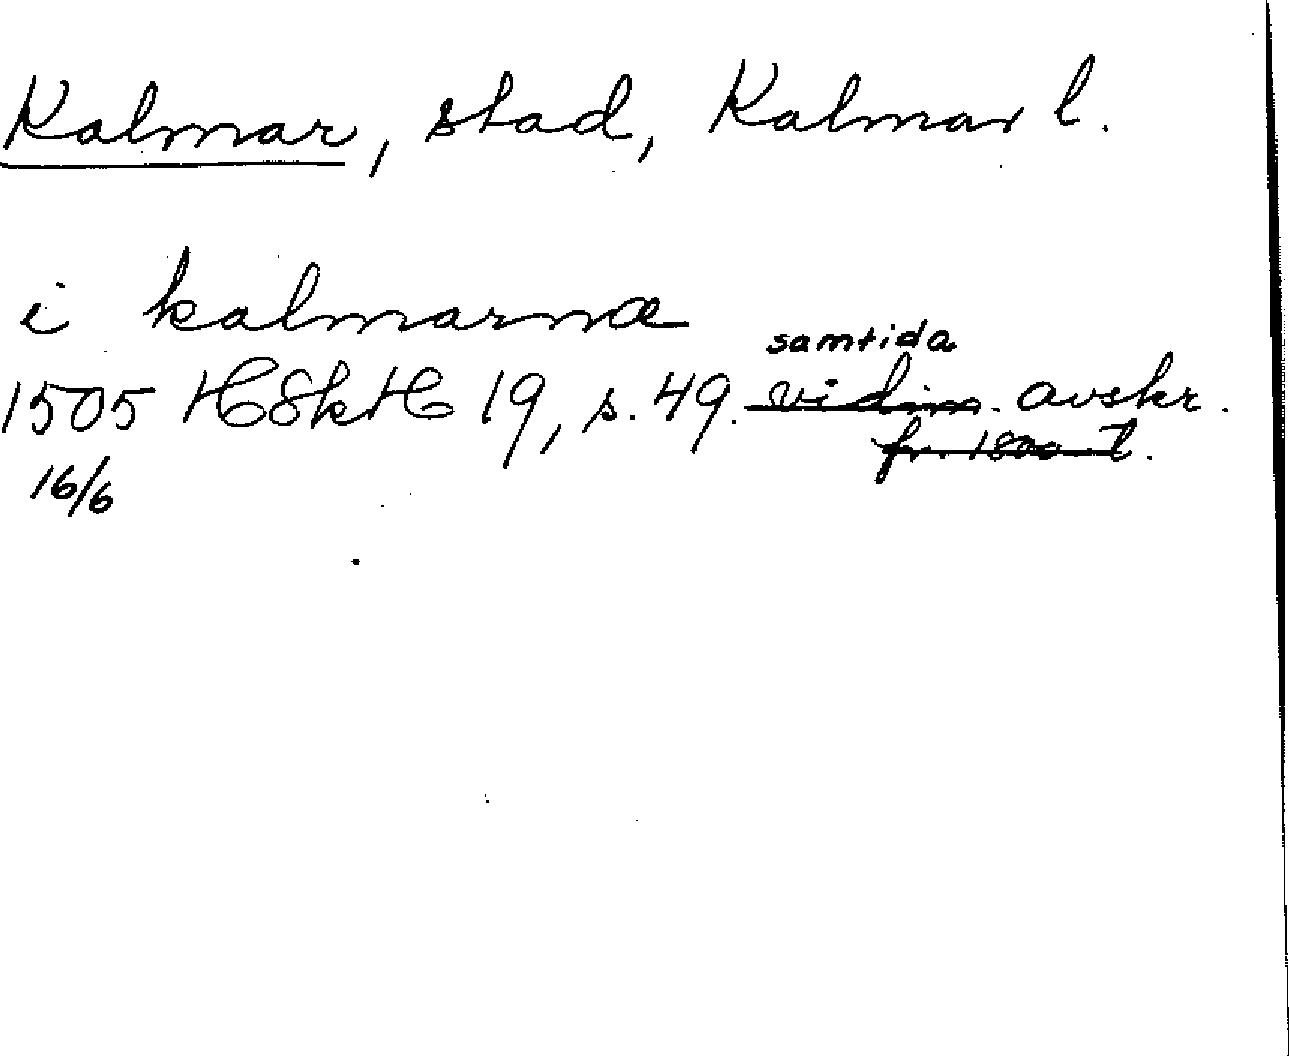 Kalmar, stad, Kalmar l.
i kalmarnæ
samtida
1505 HSkH 19, s. 49. vidim. avskr.
fr. 1800-t.
16/6